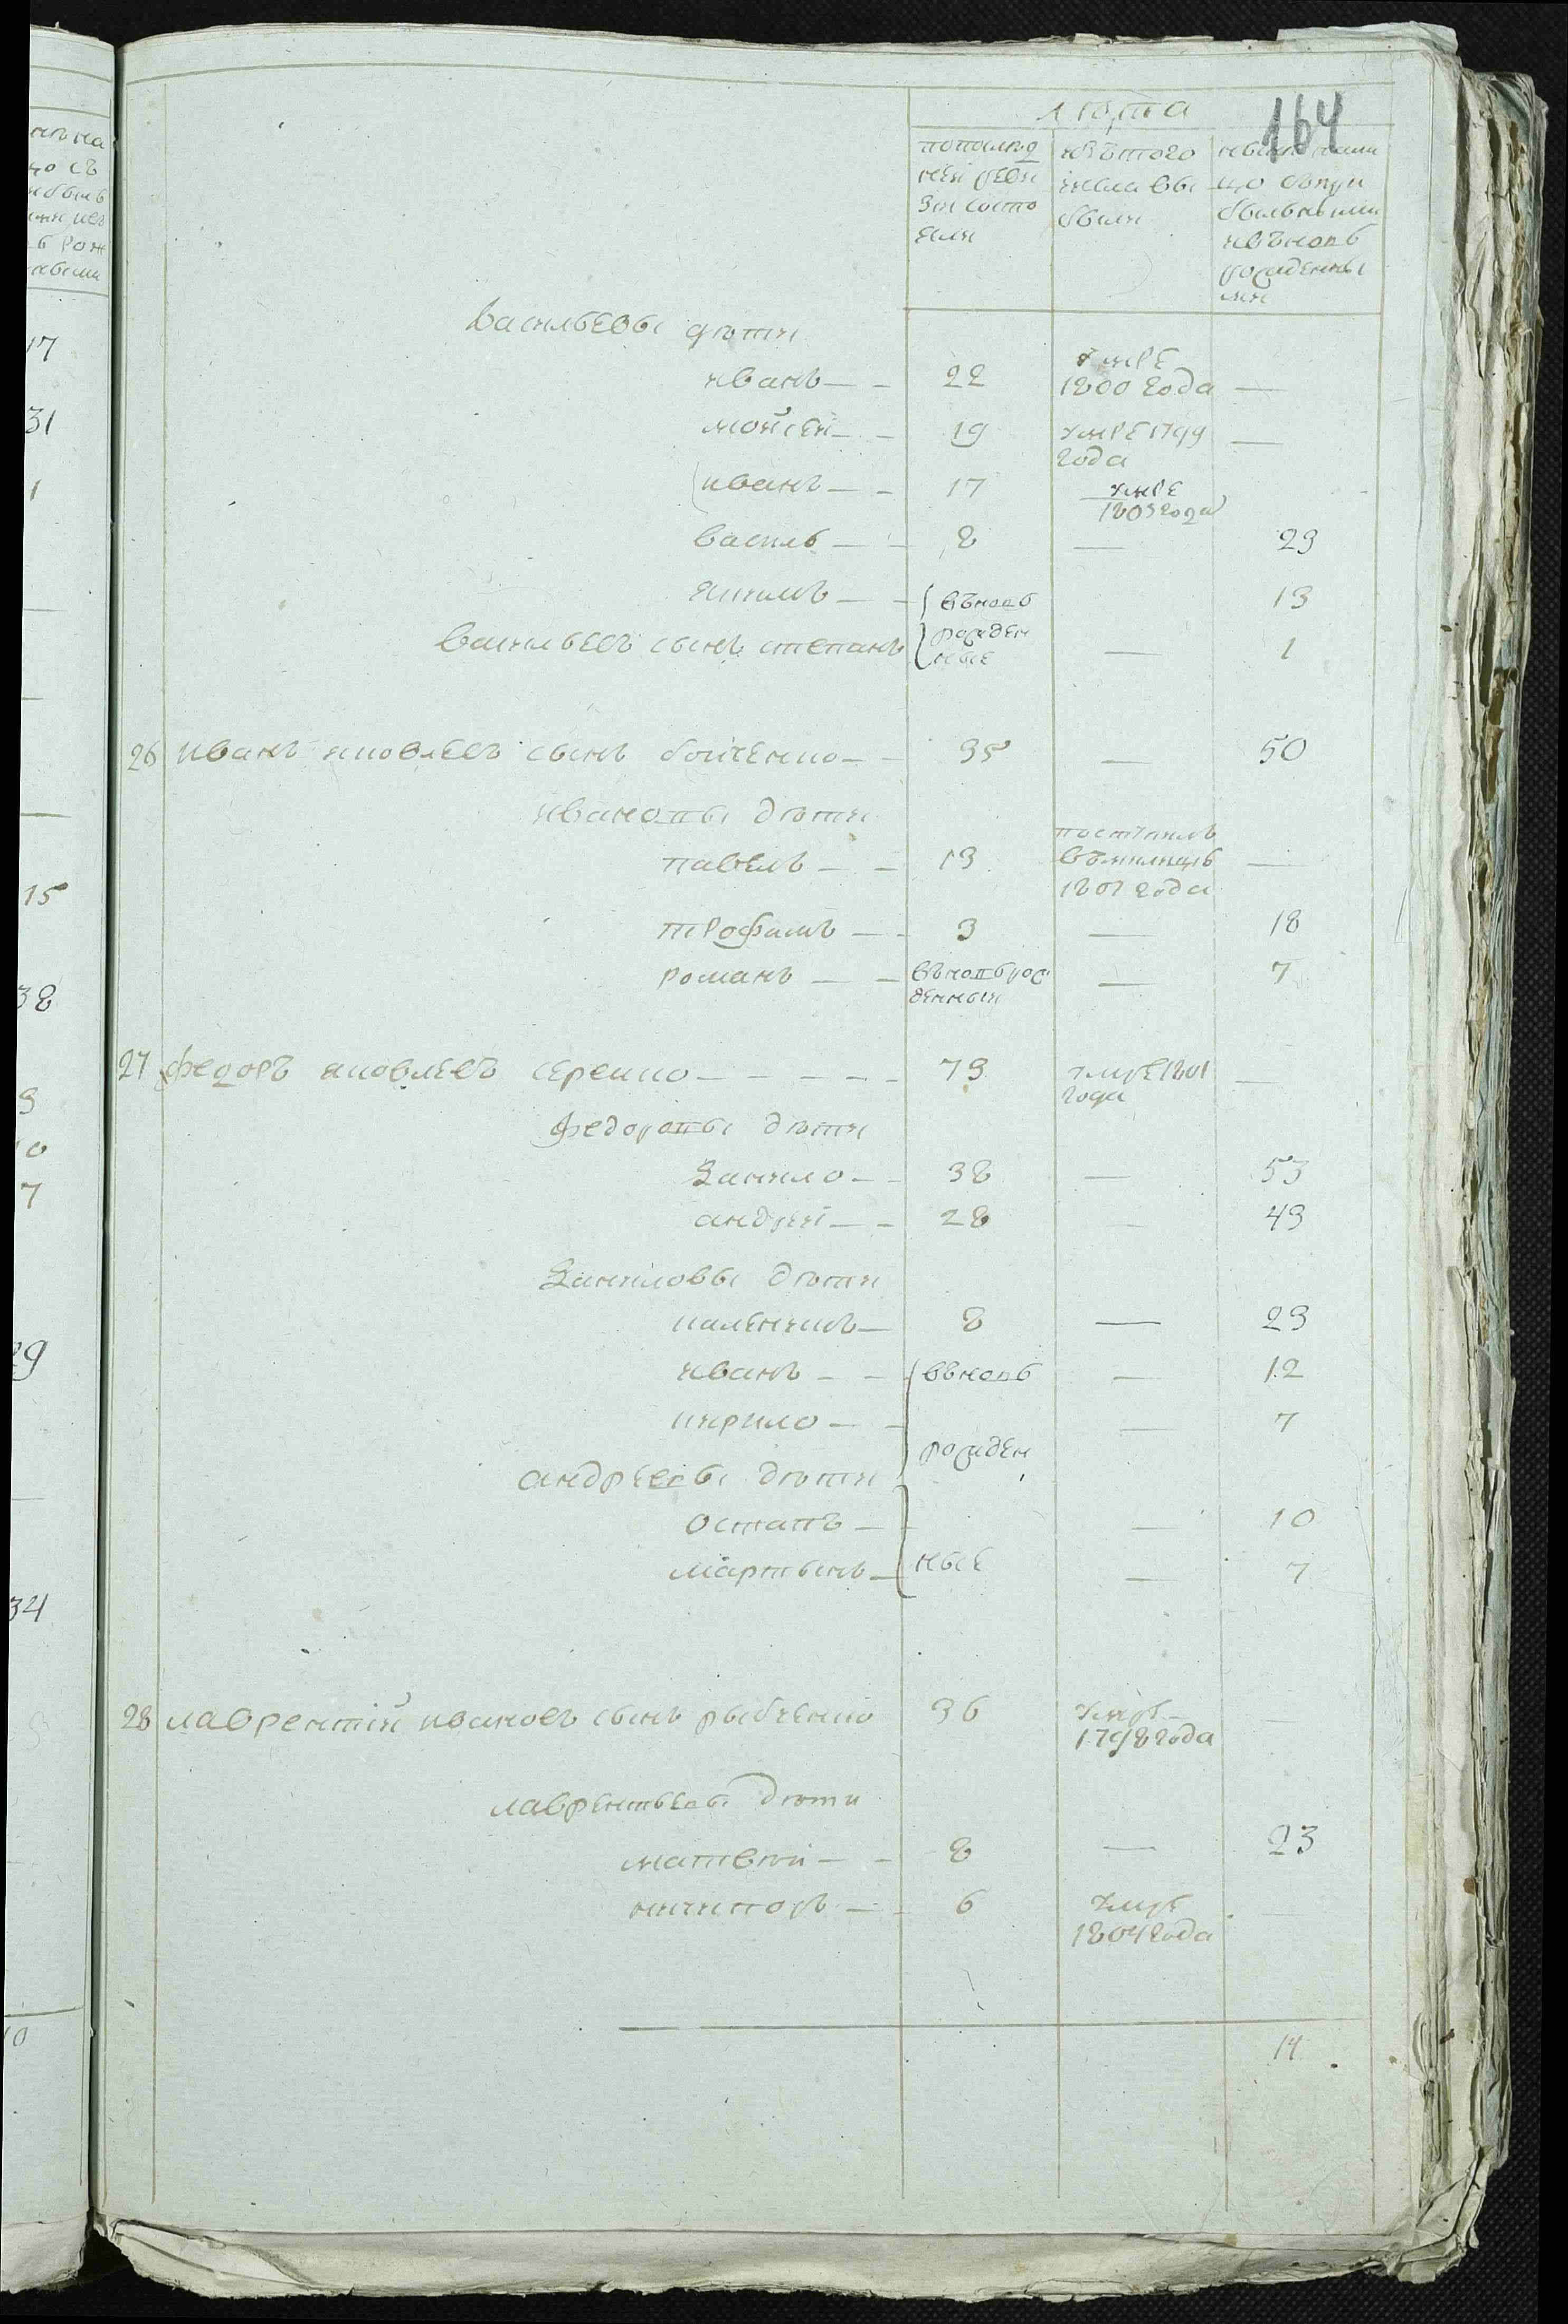 лѣта
164
попослѣд
ней реви
зіи состо
яли
изътого
числа вы
были
нынѣ нали
цо съпри
быльными
ивъновь
рожденны
ми
васильевы дѣти
иванъ — — 22 умре
1800 года —
мойсей — — 19 умре 1799
года —
иванъ — — 17 умре
1803 года
василь — — 8 — 23
якимъ — — въновь 13
васильевъ сынъ степанъ рожден
ные — 1
26 иванъ яковлевъ сынъ бойченко — — 35 — 50
ивановы дѣти
павелъ — — 13 поступилъ
въмилицію
1807 года —
трофимъ — — 3 — 18
романъ — — въновьрож
денный — 7
27 федоръ яковлевъ серенко — — — — — 73 умре 1801
года —
федоровы дѣти
данило — — 38 — 53
андрей — — 28 — 43
даниловы дѣти
каленикъ — 8 — 23
иванъ — — въновь — 12
кирило — — — 7
рожден
андреевы дѣти
остапъ — — — 10
мартынъ — ные — 7
28 лаврентій ивановъ сынъ рыбченко 36 умре
1798 года —
лаврентьевы дѣти
матвѣй — — 8 — 23
ничипоръ — — 6 умре
1804 года —
14